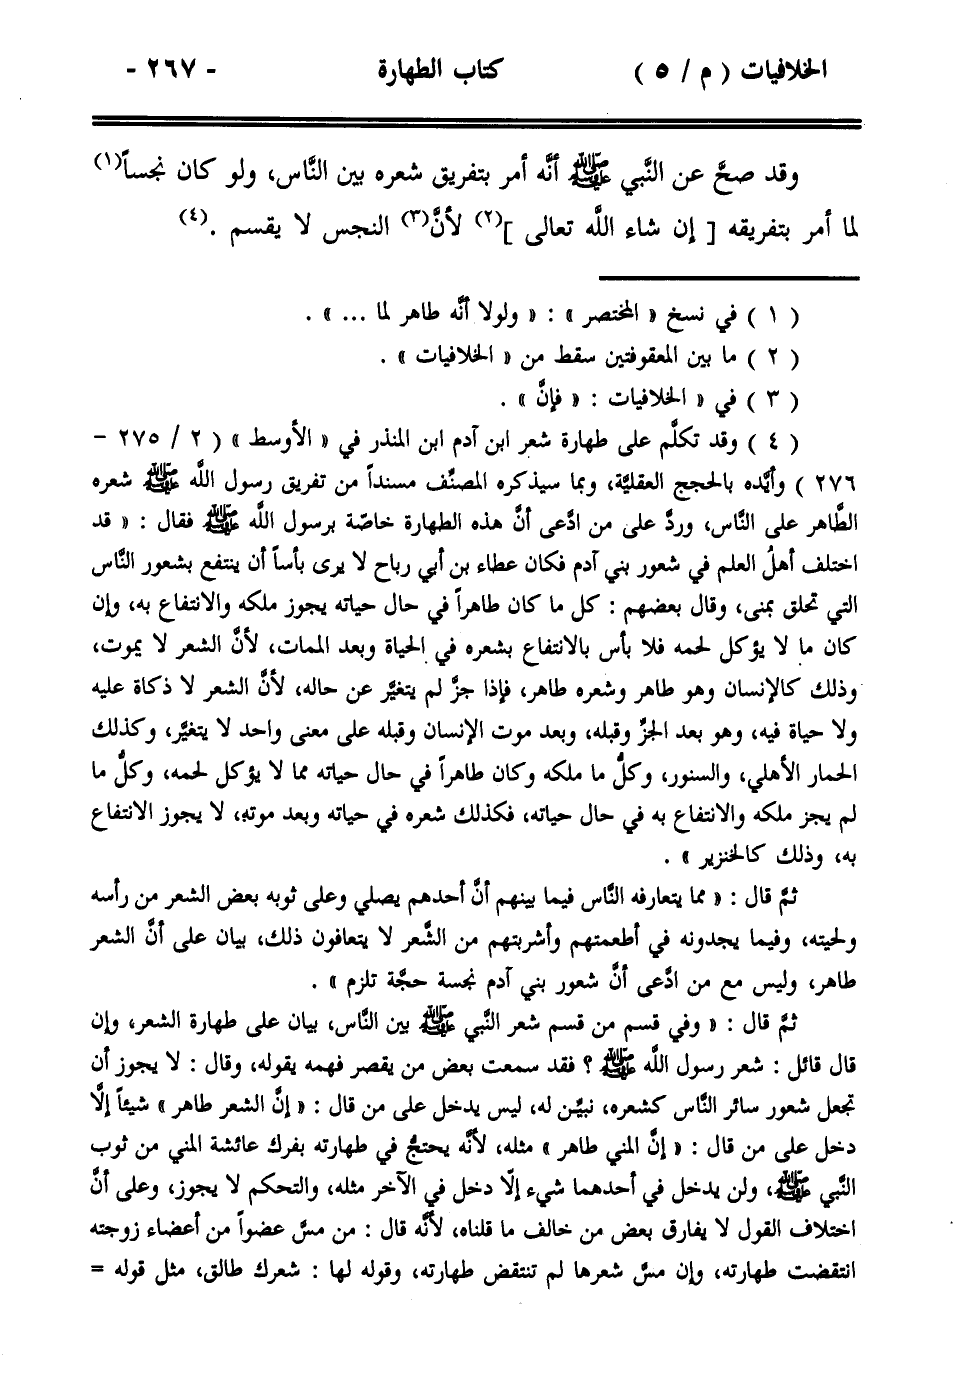 الخلافيات ( م / ٥ ) كتاب الطهارة - ٢٦٧ -
وقد صحَّ عن النَّبي ﷺ أنَّه أمر بتفريق شعره بين النَّاس، ولو كان نجساً(١)
لما أمر بتفريقه [ إن شاء اللَّه تعالى ](٢) لأنَّ(٣) النجس لا يقسم .(٤)
( ١ ) في نسخ « المختصر » : « ولولا أنَّه طاهر لما ... » .
( ٢ ) ما بين المعقوفتين سقط من « الخلافيات » .
( ٣ ) في « الخلافيات : « فإنَّ » .
( ٤ ) وقد تكلَّم على طهارة شعر ابن آدم ابن المنذر في « الأوسط » ( ٢ / ٢٧٥ -
٢٧٦ ) وأيَّده بالحجج العقليَّة، وبما سيذكره المصنِّف مسنداً من تفريق رسول اللَّه ﷺ شعره
الطَّاهر على النَّاس، وردَّ على من ادَّعى أنَّ هذه الطهارة خاصّة برسول اللَّه ﷺ فقال : « قد
اختلف أهلُ العلم في شعور بني آدم فكان عطاء بن أبي رباح لا يرى بأساً أن ينتفع بشعور النَّاس
التي تحلق بمنى، وقال بعضهم : كل ما كان طاهراً في حال حياته يجوز ملكه والانتفاع به، وإن
كان ما لا يؤكل لحمه فلا بأس بالانتفاع بشعره في الحياة وبعد الممات، لأنَّ الشعر لا يموت،
وذلك كالإنسان وهو طاهر وشعره طاهر، فإذا جزَّ لم يتغيَّر عن حاله، لأنَّ الشعر لا ذكاة عليه
ولا حياة فيه، وهو بعد الجزِّ وقبله، وبعد موت الإنسان وقبله على معنى واحد لا يتغيَّر، وكذلك
الحمار الأهلي، والسنور، وكلُّ ما ملكه وكان طاهراً في حال حياته مما لا يؤكل لحمه، وكلُّ ما
لم يجز ملكه والانتفاع به في حال حياته، فكذلك شعره في حياته وبعد موته، لا يجوز الانتفاع
به، وذلك كالخنزير » .
ثمَّ قال : « مما يتعارفه النَّاس فيما بينهم أنَّ أحدهم يصلي وعلى ثوبه بعض الشعر من رأسه
ولحيته، وفيما يجدونه في أطعمتهم وأشربتهم من الشَّعر لا يتعافون ذلك، بيان على أنَّ الشعر
طاهر، وليس مع من ادَّعى أنَّ شعور بني آدم نجسة حجَّة تلزم » .
ثمَّ قال : « وفي قسم من قسم شعر النَّبي ﷺ بين النَّاس، بيان على طهارة الشعر، وإن
قال قائل : شعر رسول اللَّه ﷺ ؟ فقد سمعت بعض من يقصر فهمه يقوله، وقال : لا يجوز أن
تجعل شعور سائر النَّاس كشعره، نبيِّن له، ليس يدخل على من قال : « إنَّ الشعر طاهر » شيئاً إلَّا
دخل على من قال : « إنَّ المني طاهر » مثله، لأنَّه يحتجُّ في طهارته بفرك عائشة المني من ثوب
النَّبي ﷺ، ولن يدخل في أحدهما شيء إلّا دخل في الآخر مثله، والتحكم لا يجوز، وعلى أنَّ
اختلاف القول لا يفارق بعض من خالف ما قلناه، لأنَّه قال : من مسَّ عضواً من أعضاء زوجته
انتقضت طهارته، وإن مسَّ شعرها لم تنتقض طهارته، وقوله لها : شعرك طالق، مثل قوله =